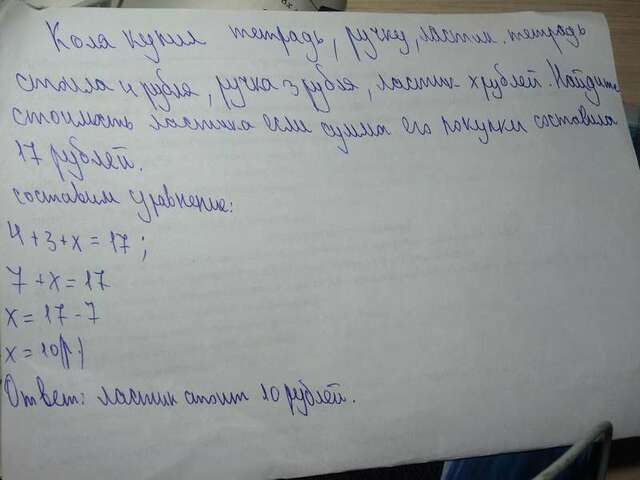 Коля купил тетрадь, ручку, ластик. тетрадь
стоила 4 рубля, ручка 3 рубля, ластик - x рублей. Найдите
стоимость ластика если сумма его покупки составила
17 рублей.
составим уравнение:
4+3+x=17;
7+x=17
x=17-7
x=10(р.)
Ответ: ластик стоит 10 рублей.